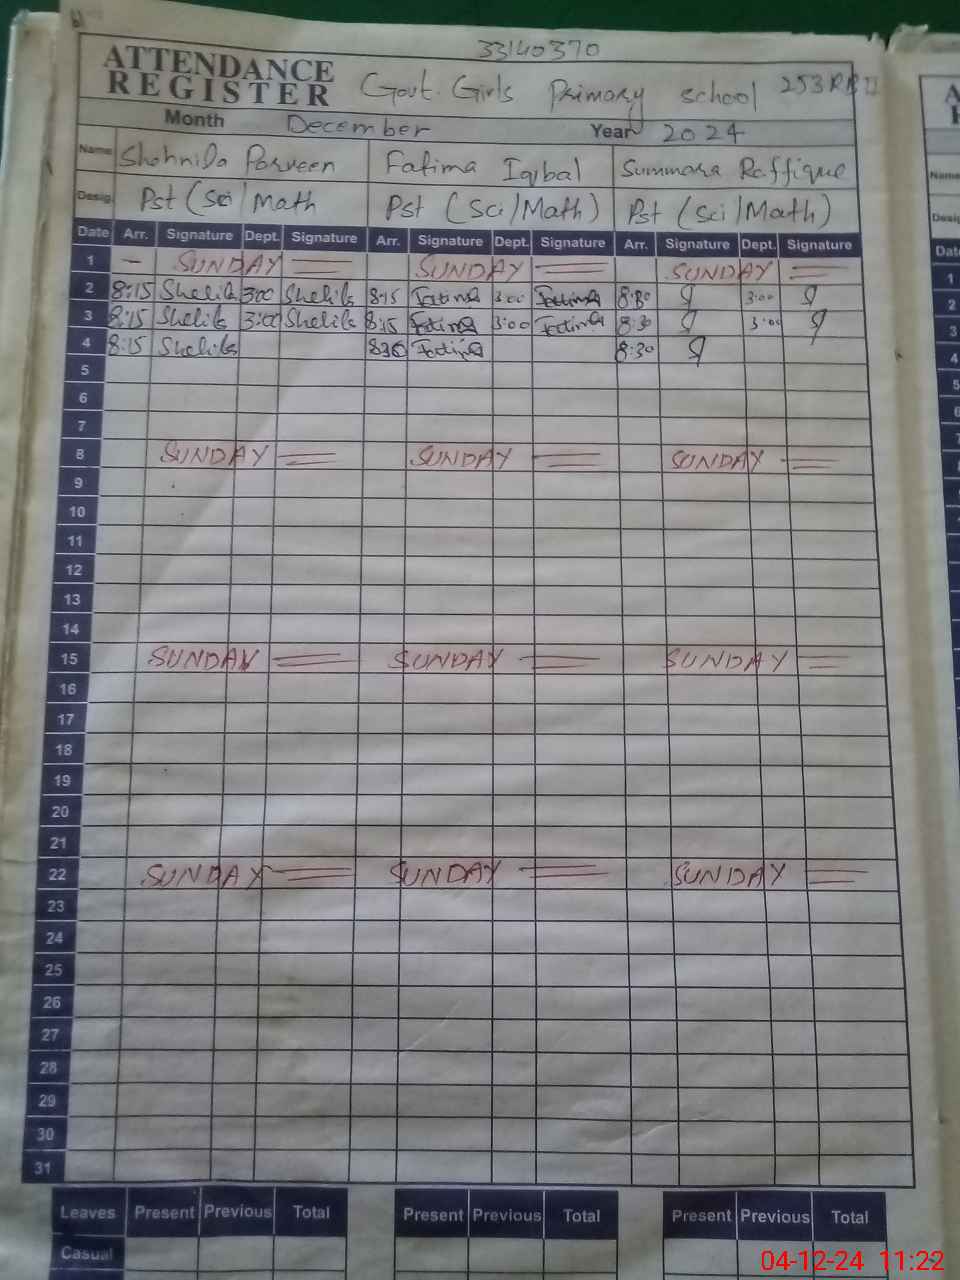 33140370
ATTENDANCE
REGISTER Govt. Girls Primary school 253RB
Month December Year 2024
Name Shahnila Parveen Fatima Iqbal Summara Raffique
Desig. Pst (Sci/Math Pst (Sci/Math) Pst (Sci/Math)
Date Arr. Signature Dept. Signature Arr. Signature Dept. Signature Arr. Signature Dept. Signature
1 — SUNDAY SUNDAY SUNDAY
2 8:15 3:00 8:15 Fatima 3:00 Fatima 8:30 3:00
3 8:15 3:00 8:15 Fatima 3:00 Fatima 8:30 3:00
4 8:15 830 Fatima 8:30
5
6
7
8 SUNDAY SUNDAY SUNDAY
9
10
11
12
13
14
15 SUNDAY SUNDAY SUNDAY
16
17
18
19
20
21
22 SUNDAY SUNDAY SUNDAY
23
24
25
26
27
28
29
30
31
Leaves Present Previous Total Present Previous Total Present Previous Total
Casual
04-12-24 11:22